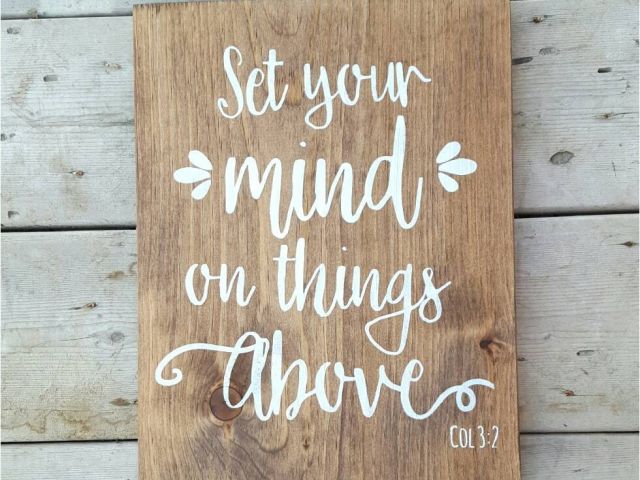 Set your
mind
on things
Above
COL 3:2